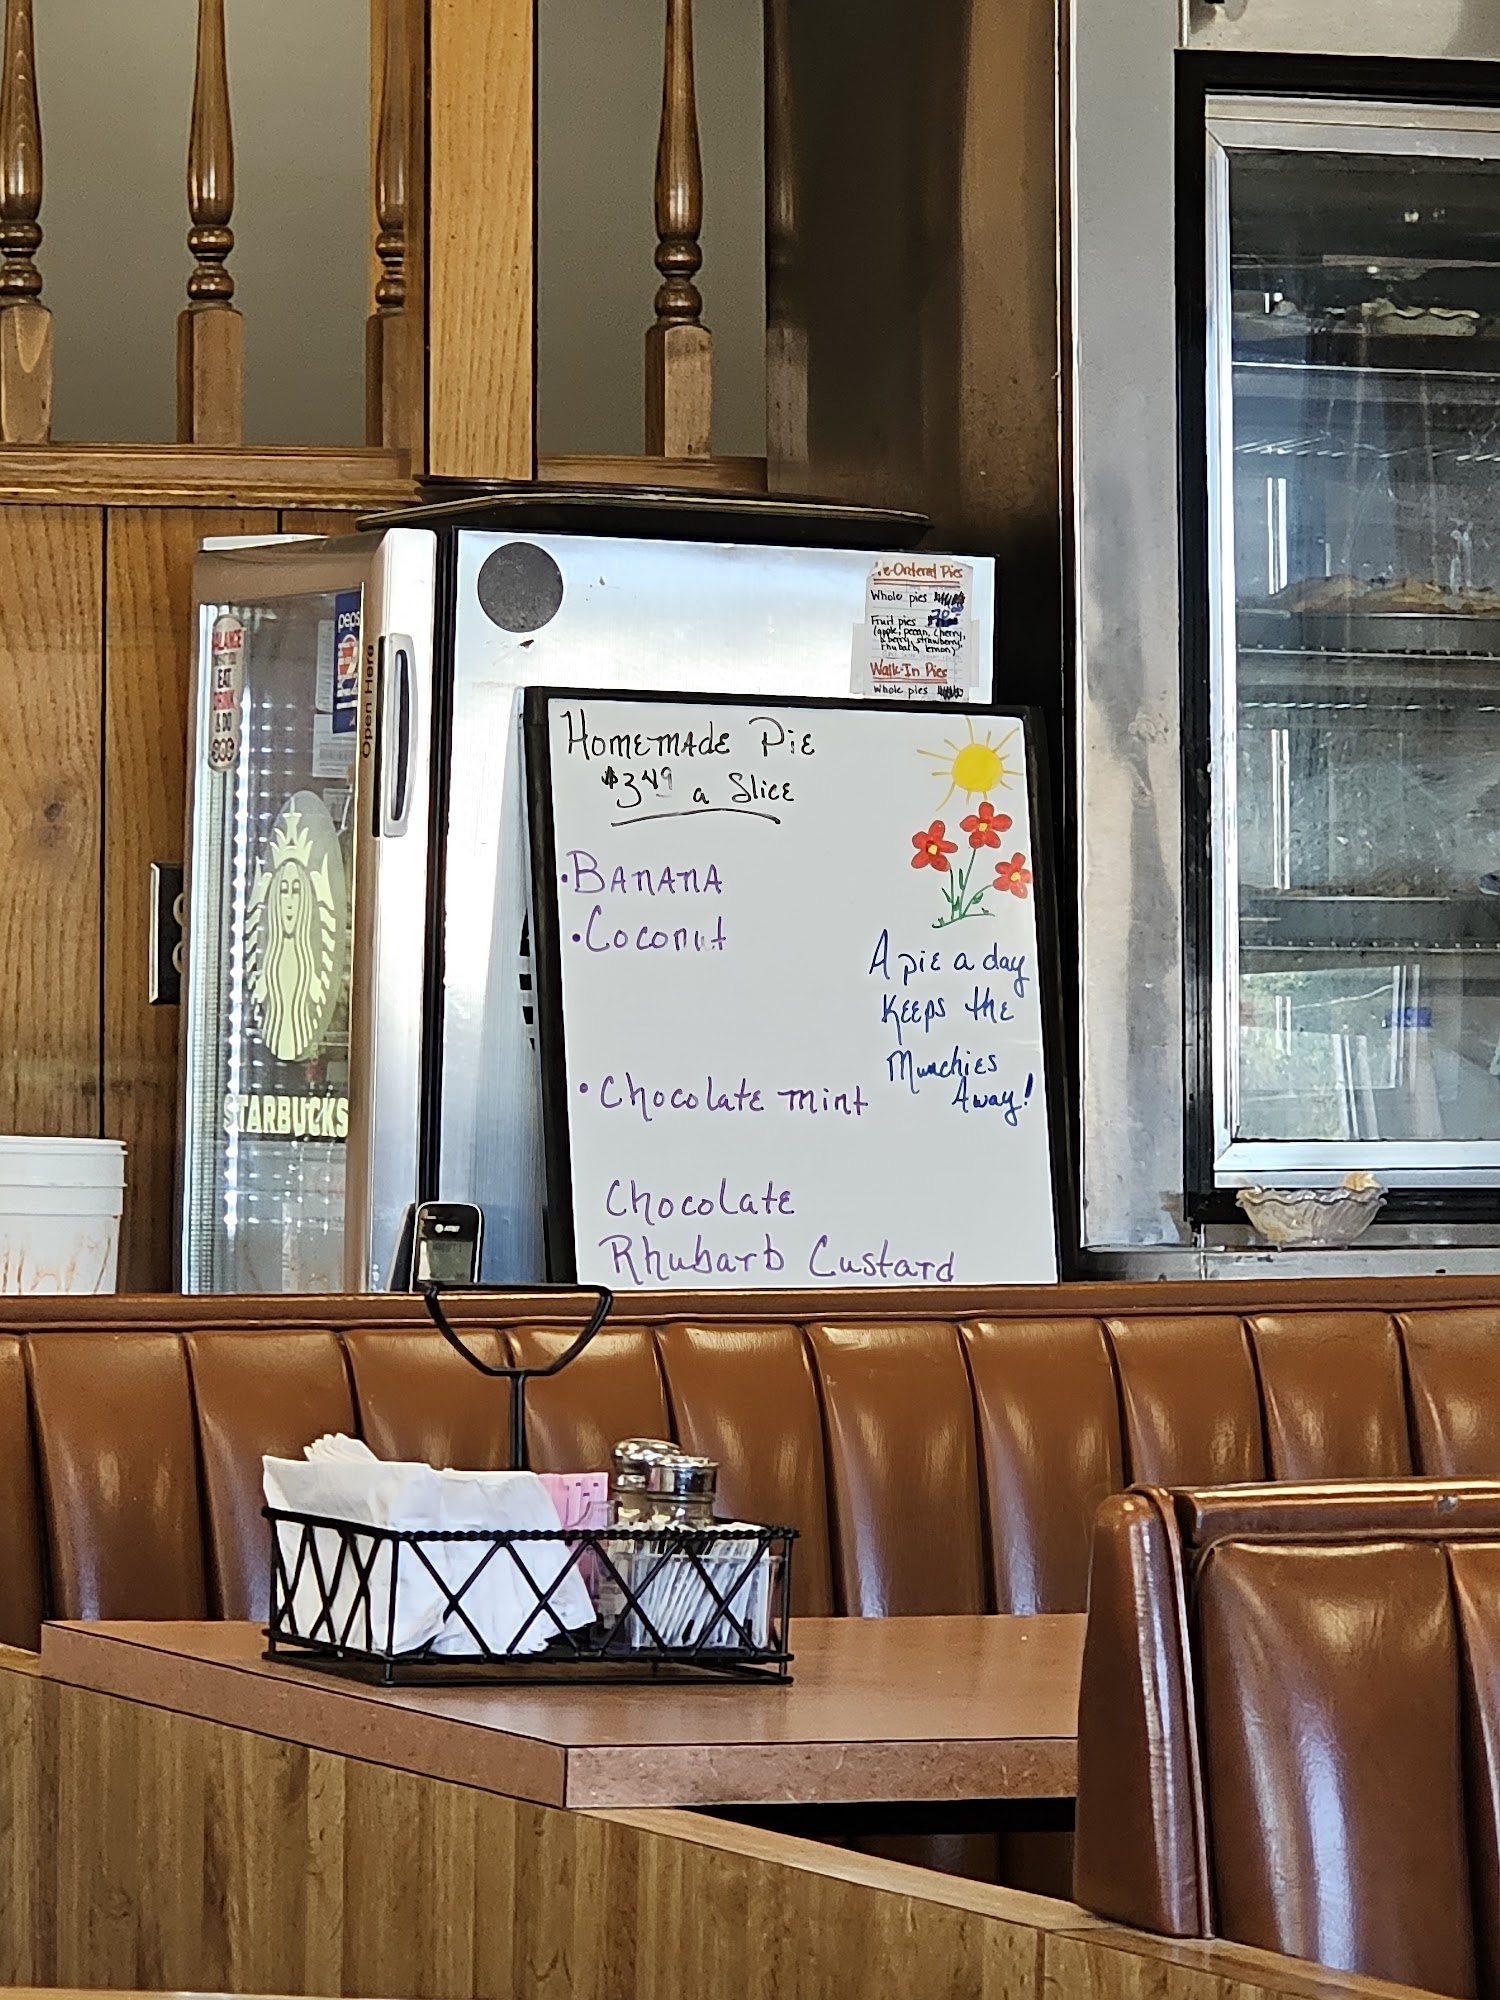 Pre-Ordered Pies
Whole pies
Fruit pies
(apple, pecan, cherry,
strawberry,
rhubarb, lemon)
Walk-In Pies
Whole pies
BALANCE
EAT
DRINK
& DO
pepsi
Open Here
STARBUCKS
at&t
Homemade Pie
$3.49 a Slice
• Banana
• Coconut
• Chocolate mint
Chocolate
Rhubarb Custard
A pie a day
Keeps the
Munchies
Away!